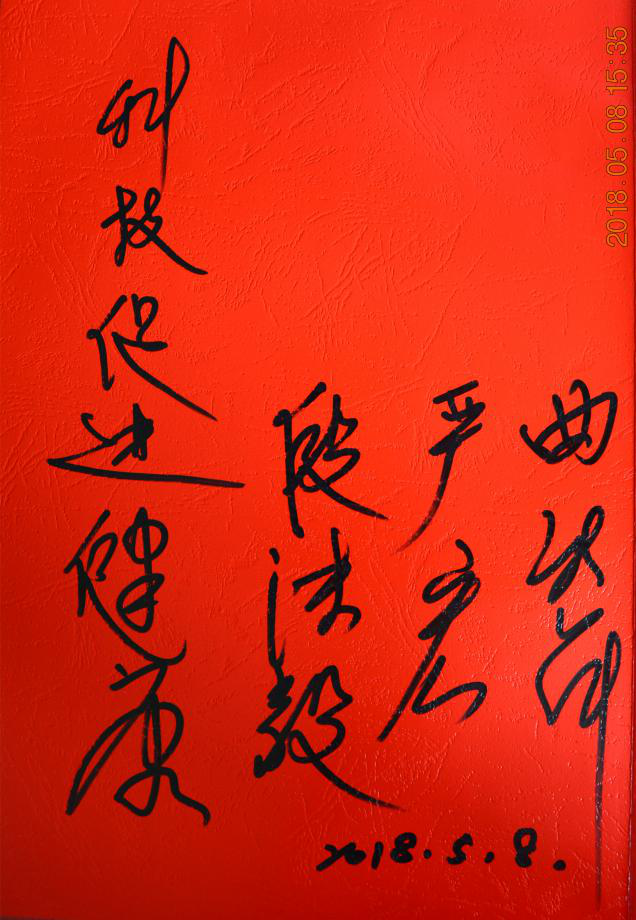 科技促进健康
段 毅
严宏
曲
2018.5.8.
2018.05.08 15:35